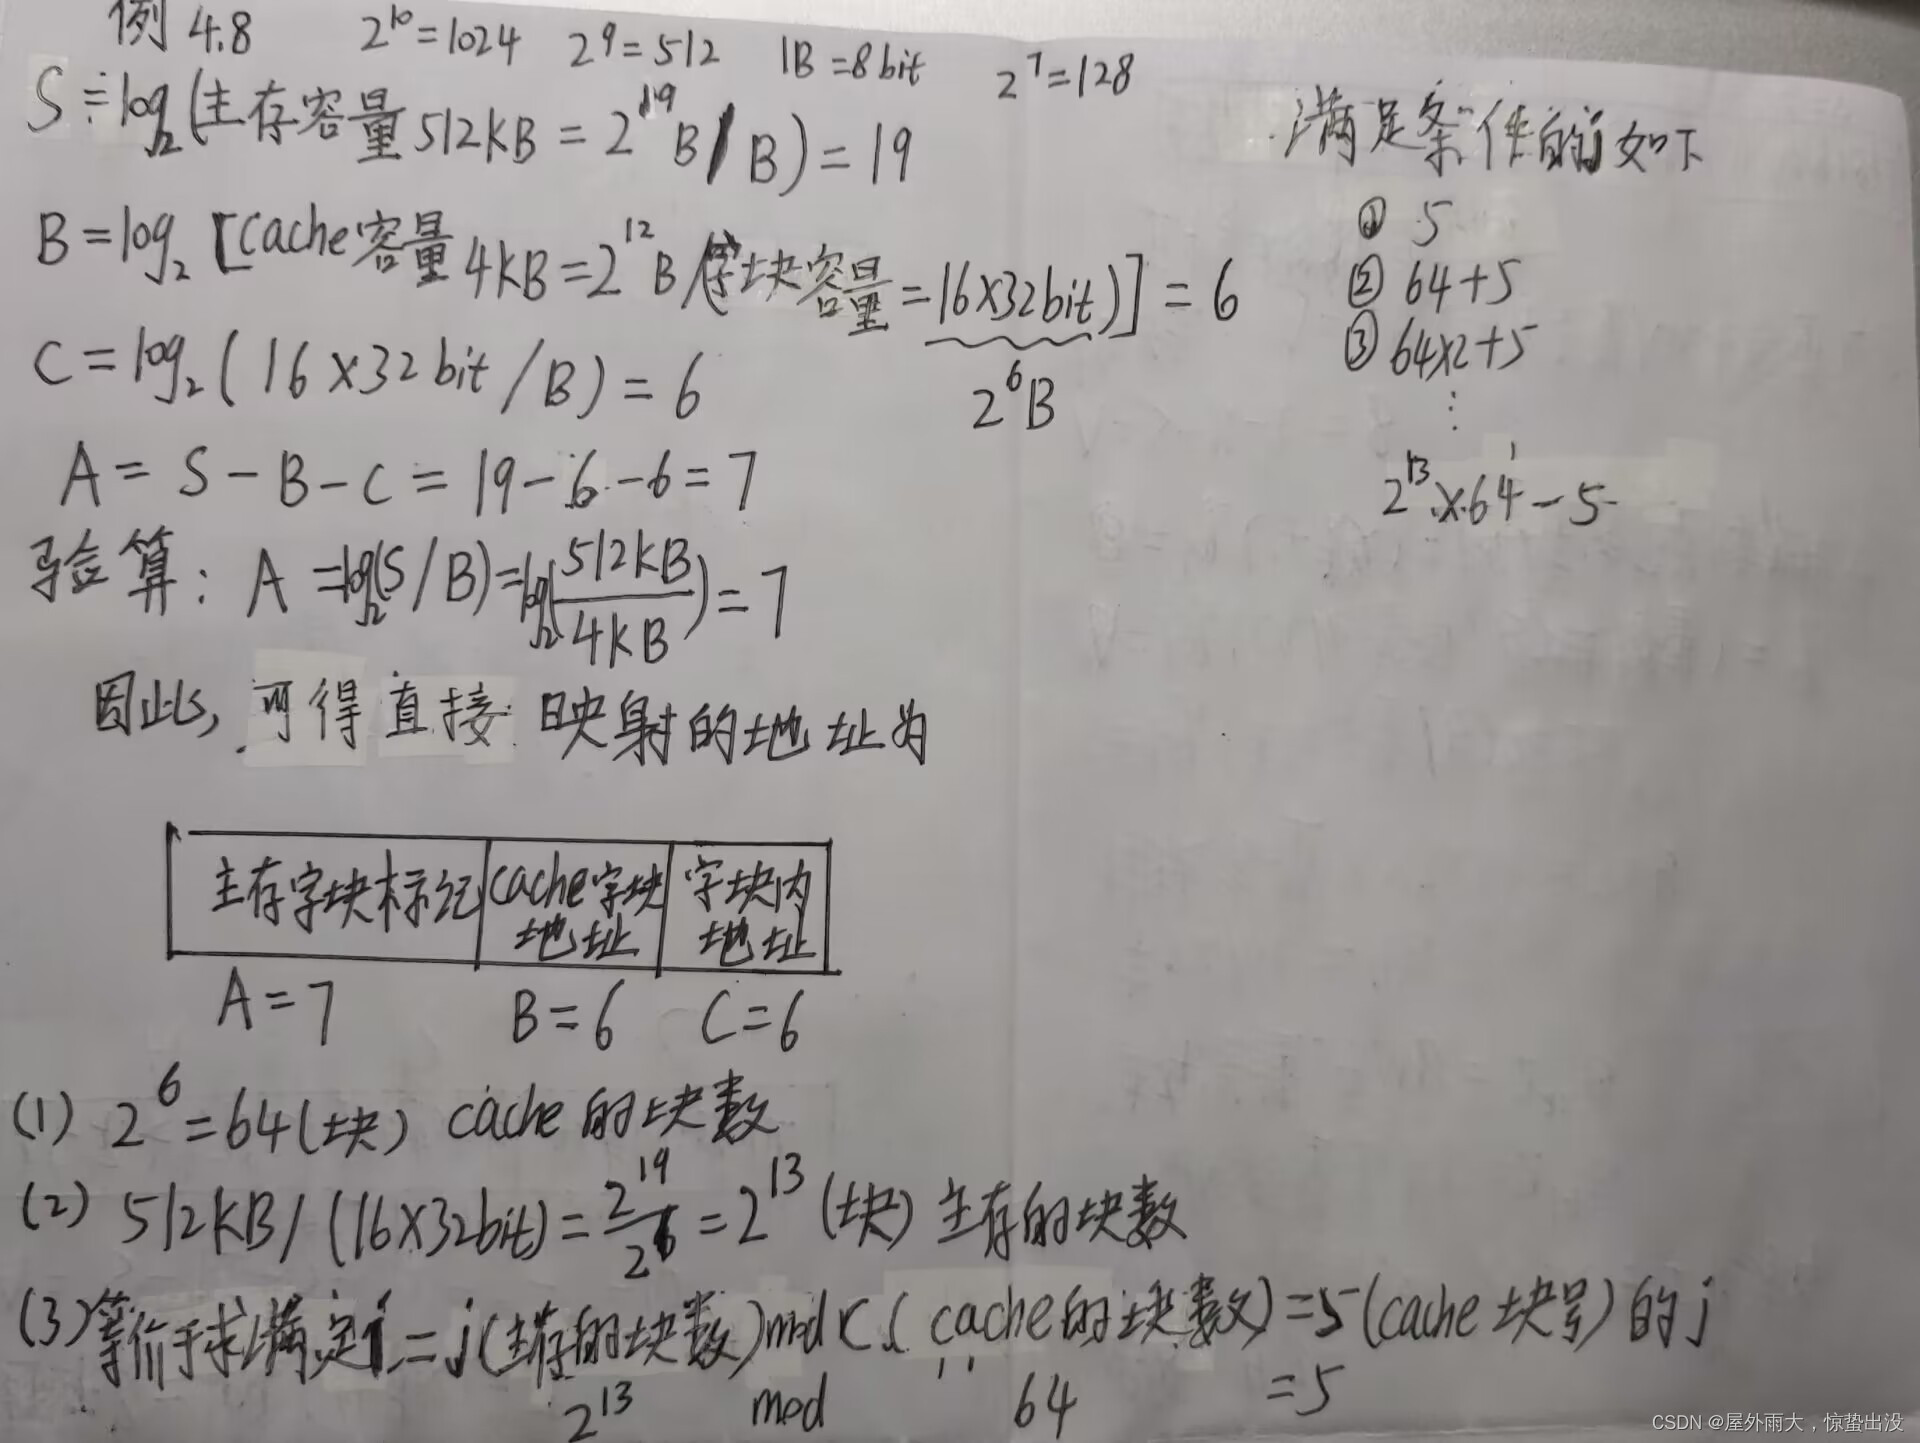 例 4.8 2^10=1024 2^9=512 1B=8bit 2^7=128
S=log₂(主存容量512KB=2^19B/B)=19
B=log₂[cache容量4KB=2^12B/(字块容量=16×32bit)]=6
2^6B
C=log₂(16×32bit/B)=6
A=S-B-C=19-6-6=7
验算:A=log₂(S/B)=log₂(512KB/4KB)=7
因此,可得直接映射的地址为
主存字块标记 cache字块地址 字块内地址
A=7 B=6 C=6
(1) 2^6=64(块) cache的块数
(2) 512KB/(16×32bit)=2^19/2^6=2^13(块) 主存的块数
(3) 等价于求满足i=j(主存的块数)mod C(cache的块数)=5(cache块号)的j
2^13 mod 64 =5
满足条件的j如下
① 5
② 64+5
③ 64×2+5
⋮
2^13×64-5
CSDN @屋外雨大,惊蛰出没